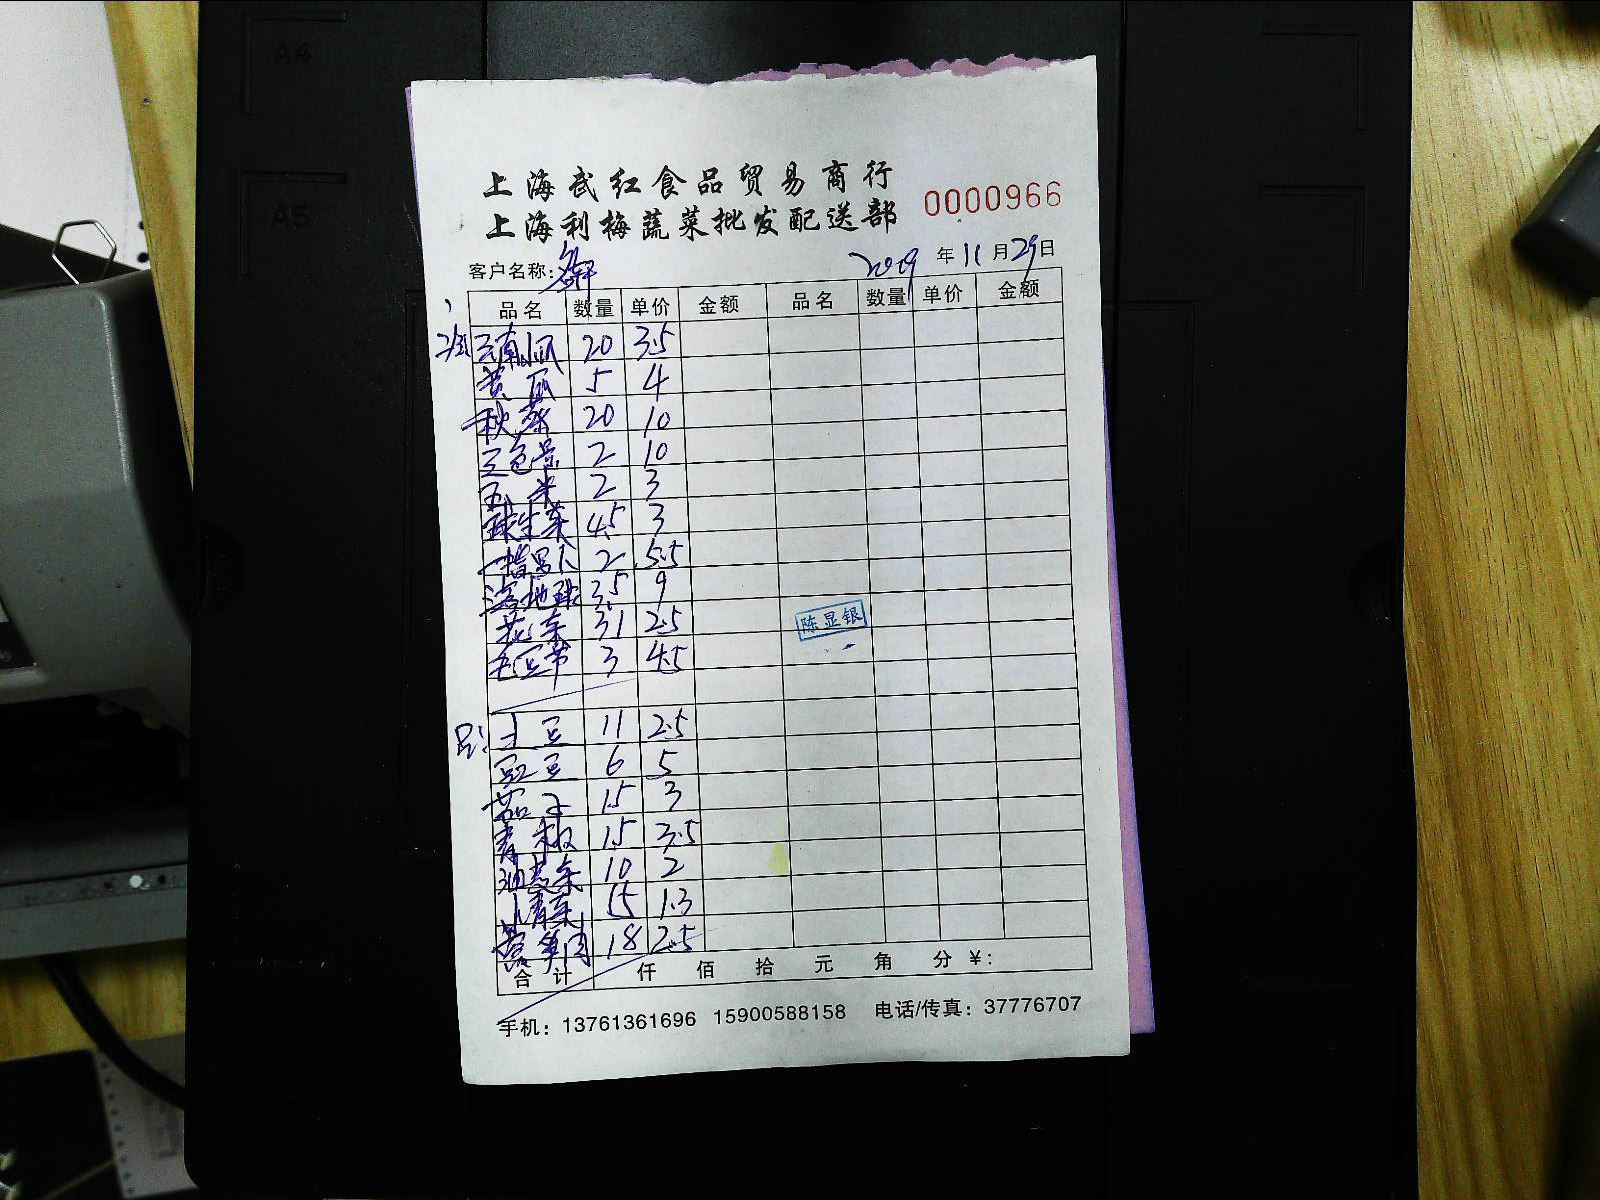 A4
A5
上海武红食品贸易商行
上海利梅蔬菜批发配送部
0000966
客户名称:
2019 年 11 月 29 日
品名 数量 单价 金额 品名 数量 单价 金额
20 3.5
黄瓜 5 4
秋葵 20 10
三色堇 2 10
玉米 2 3
球生菜 4.5 3
2 5.5
3.5 9
花菜 31 2.5
毛豆节 3 4.5
陈显银
土豆 11 2.5
豇豆 6 5
茄子 15 3
青椒 15 3.5
油麦菜 10 2
小青菜 15 1.3
莴笋肉 18 2.5
合计 仟 佰 拾 元 角 分 ¥:
手机: 13761361696 15900588158 电话/传真: 37776707